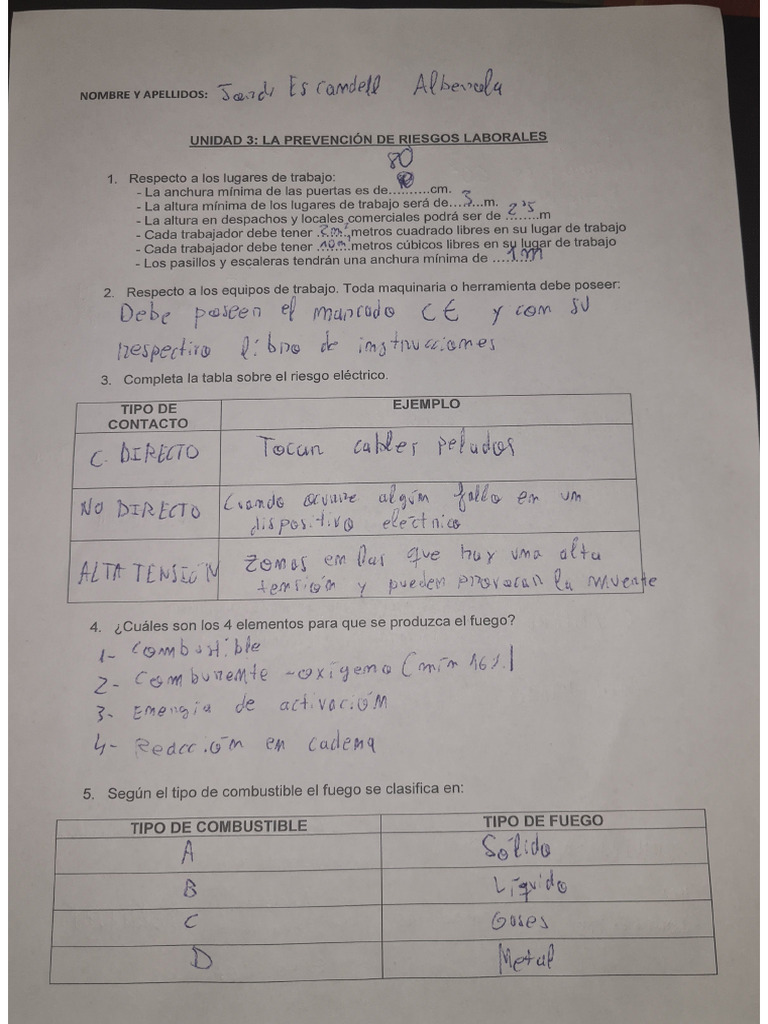 NOMBRE Y APELLIDOS: Jordi Escandell Alberola
UNIDAD 3: LA PREVENCIÓN DE RIESGOS LABORALES
80
1. Respecto a los lugares de trabajo:
- La anchura mínima de las puertas es de..........cm.
- La altura mínima de los lugares de trabajo será de...3...m.
- La altura en despachos y locales comerciales podrá ser de 2'5 m
- Cada trabajador debe tener .2m².metros cuadrado libres en su lugar de trabajo
- Cada trabajador debe tener .10m³.metros cúbicos libres en su lugar de trabajo
- Los pasillos y escaleras tendrán una anchura mínima de ...1m
2. Respecto a los equipos de trabajo. Toda maquinaria o herramienta debe poseer:
Debe poseer el marcado CE y con su
respectivo libro de instrucciones
3. Completa la tabla sobre el riesgo eléctrico.
TIPO DE CONTACTO EJEMPLO
C. DIRECTO Tocar cables pelados
NO DIRECTO Cuando ocurre algún fallo en un
dispositivo eléctrico
ALTA TENSIÓN Zonas en las que hay una alta
tensión y pueden provocar la muerte
4. ¿Cuáles son los 4 elementos para que se produzca el fuego?
1- Combustible
2- Comburente - oxígeno (min 16%)
3- Energía de activación
4- Reacción en cadena
5. Según el tipo de combustible el fuego se clasifica en:
TIPO DE COMBUSTIBLE TIPO DE FUEGO
A Sólido
B Líquido
C Gases
D Metal